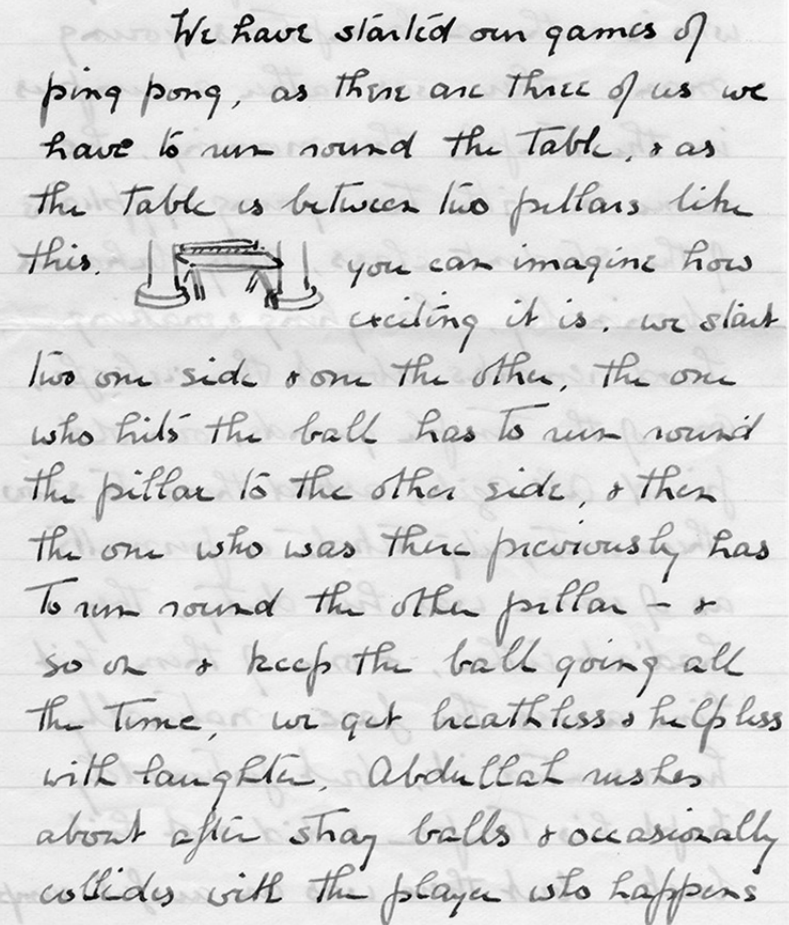 We have started our games of
ping pong, as there are three of us we
have to run round the table, & as
the table is between two pillars like
this. you can imagine how
exciting it is. we start
two one side & one the other, the one
who hits the ball has to run round
the pillar to the other side, & then
the one who was there previously has
to run round the other pillar – &
so on & keep the ball going all
the time, we get breathless & helpless
with laughter. Abdullah rushes
about after stray balls & occasionally
collides with the player who happens